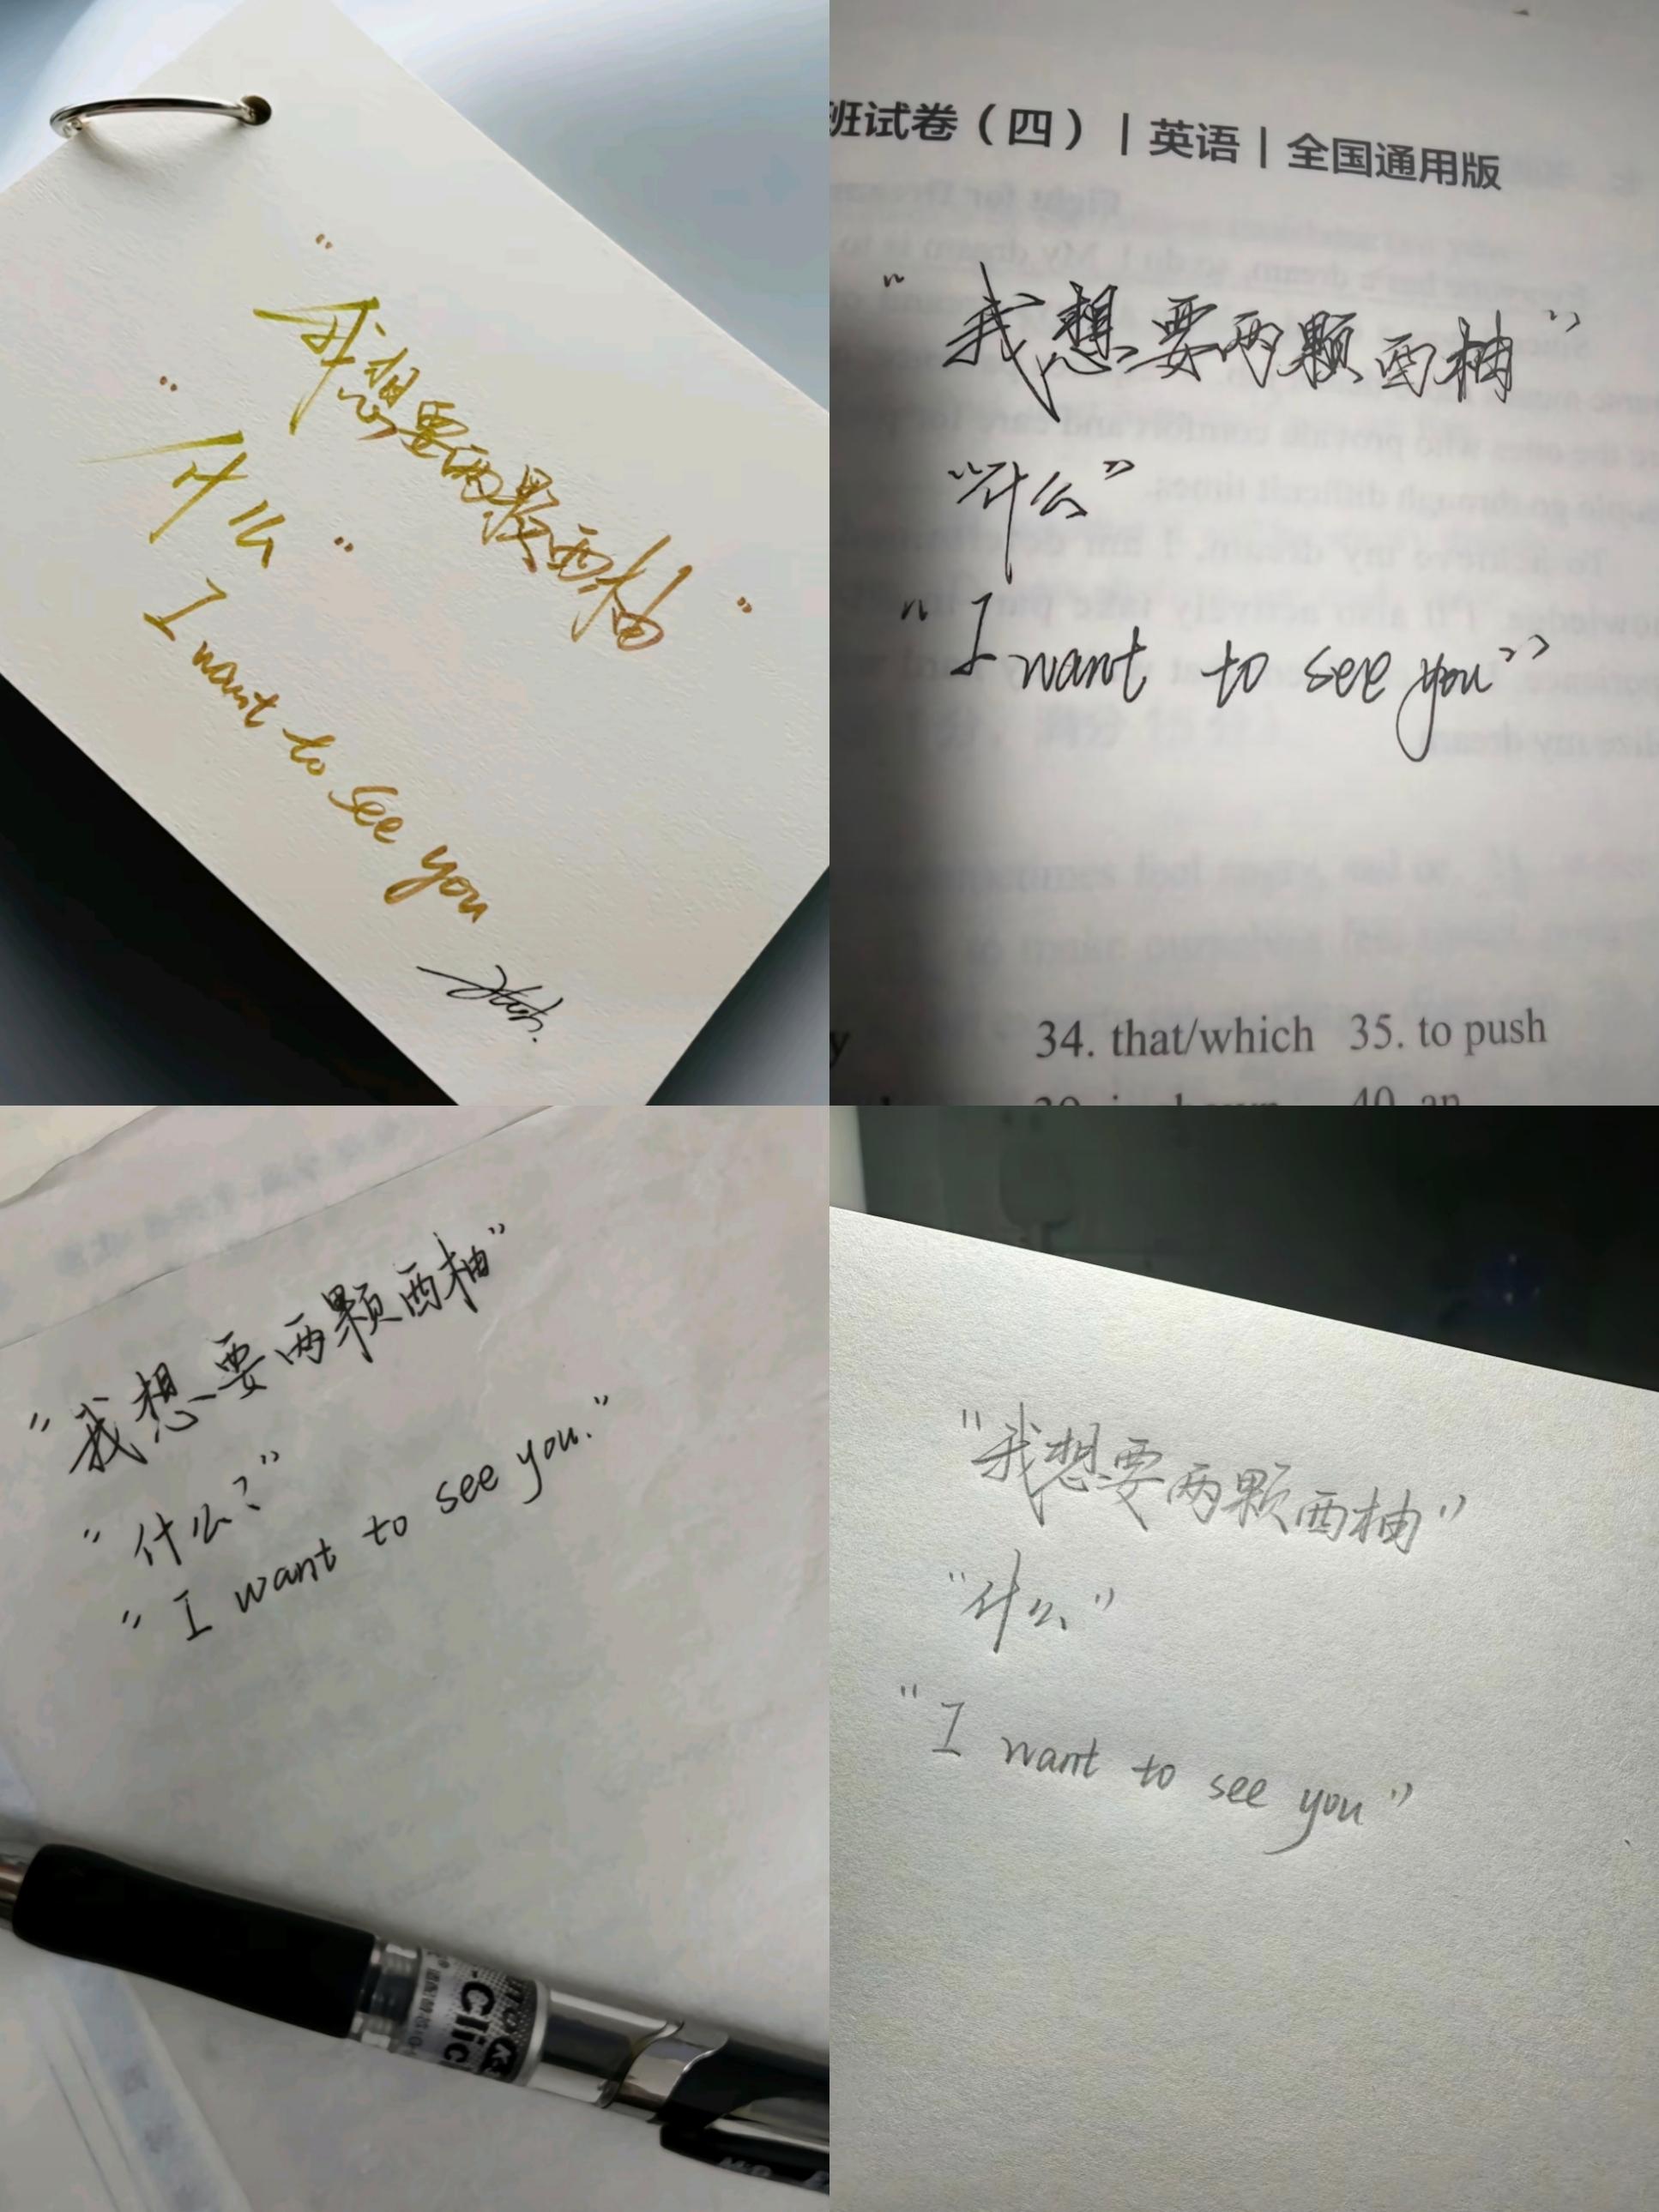 "我想要两颗西柚"
"什么"
I want to see you
班试卷（四）｜英语｜全国通用版
"我想要两颗西柚"
"什么"
"I want to see you"
34. that/which 35. to push
40. an
"我想要两颗西柚"
"什么？"
"I want to see you."
Clic
"我想要两颗西柚"
"什么"
"I want to see you"